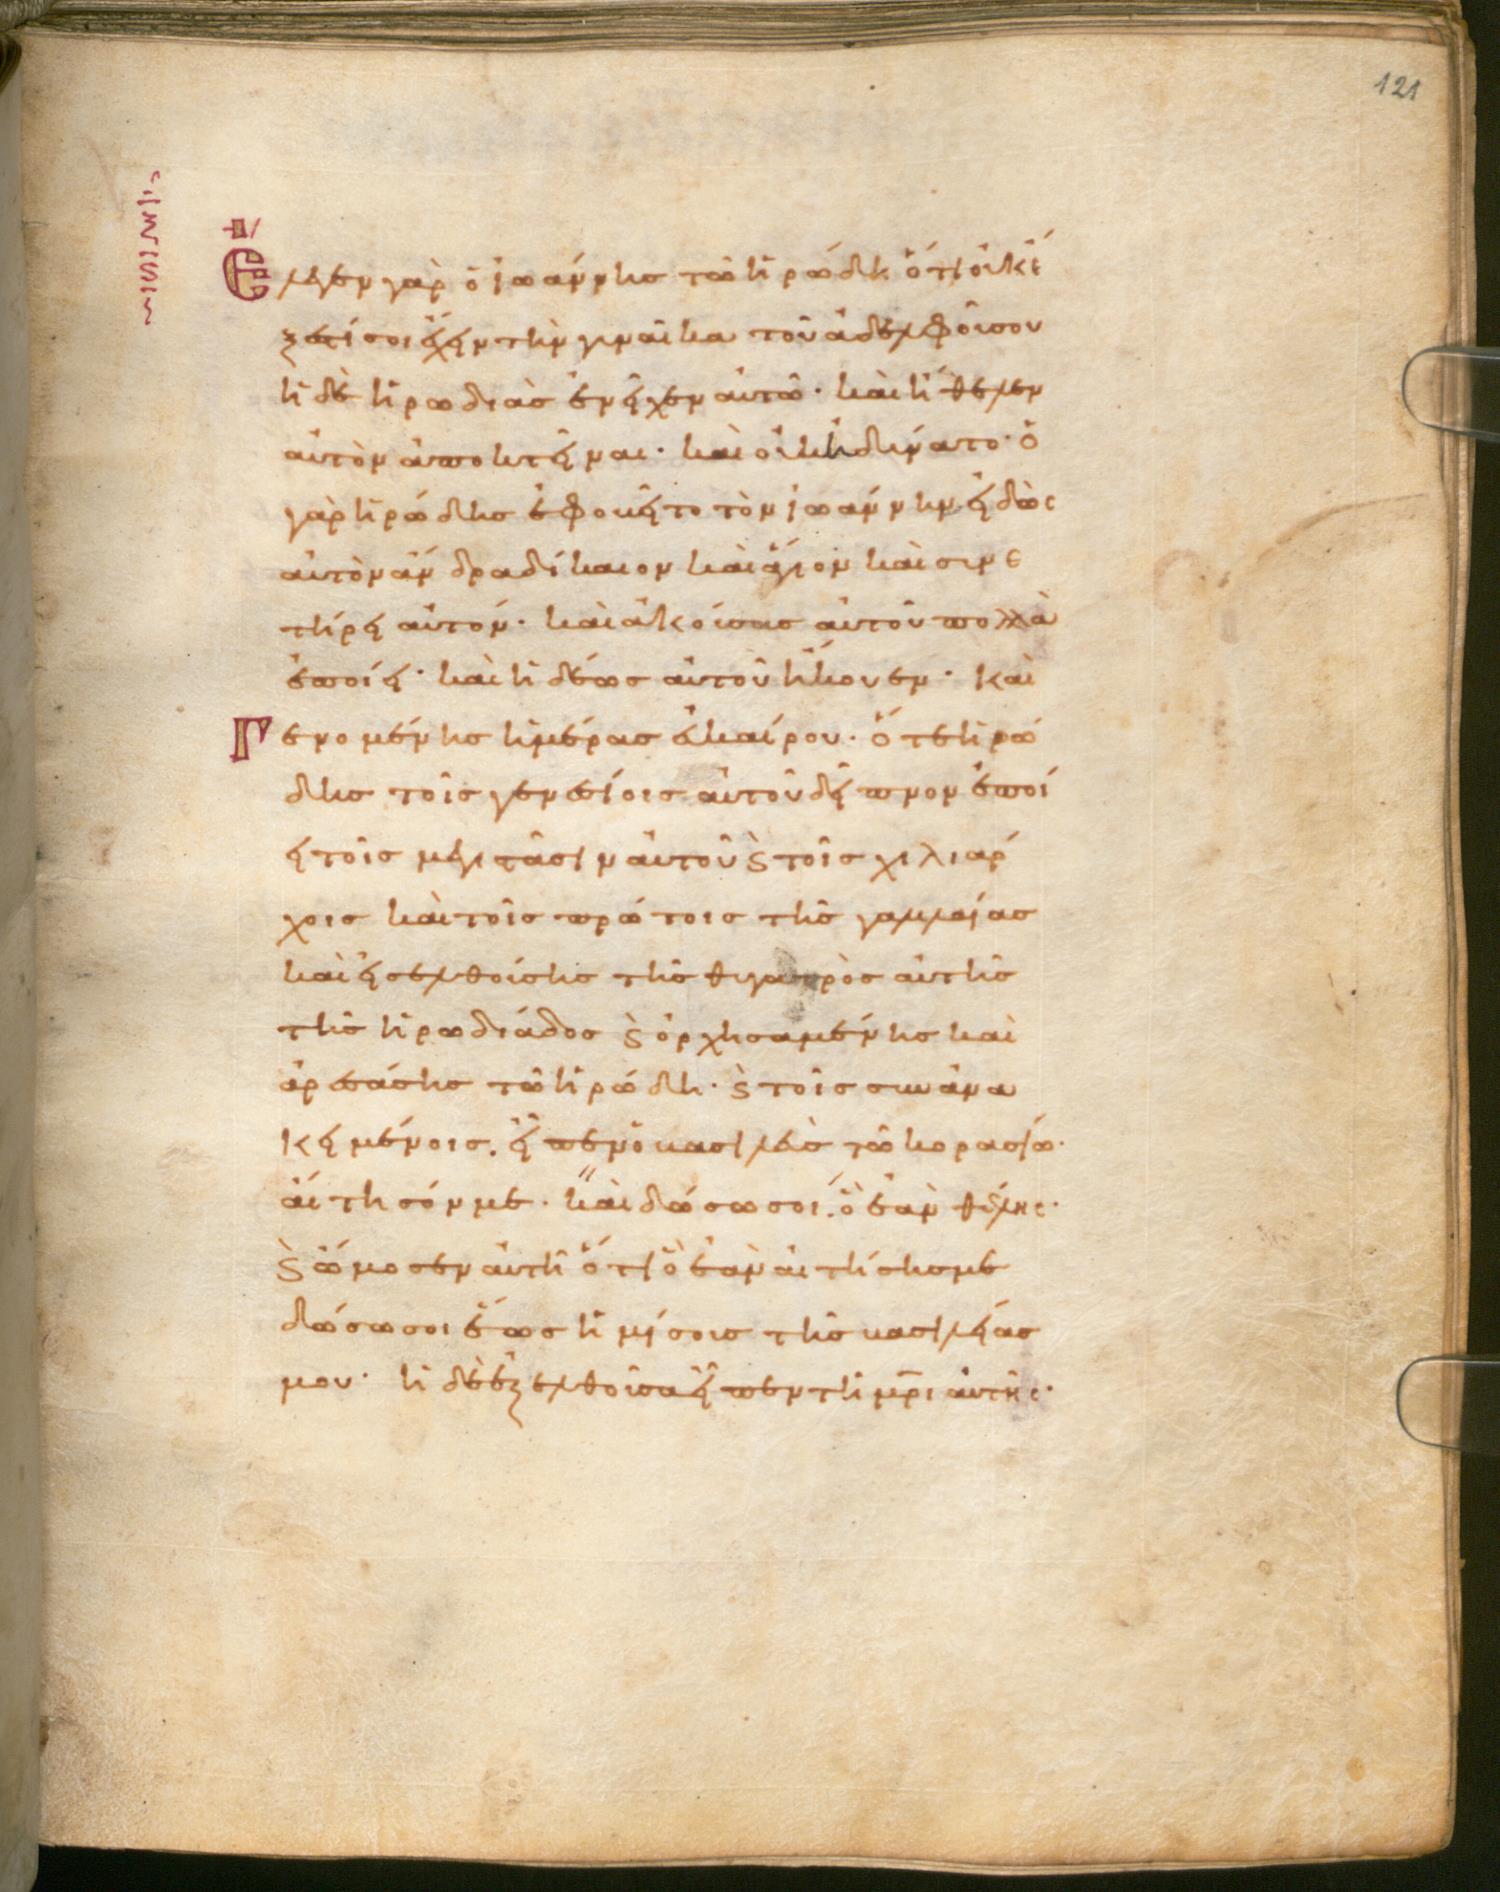 121
Ἔλεγεν γὰρ ὁ ἰωάννης τῶ ἡρώδη ὅτι οὐκ ἔ
ξεστί σοι ἔχειν τὴν γυναῖκα τοῦ ἀδελφοῦ σου
ἡ δὲ ἡρωδιὰς ἐνεῖχεν αὐτῶ· καὶ ἤθελεν
αὐτὸν ἀποκτεῖναι· καὶ οὐκ ἠδύνατο· ὁ
γὰρ ἡρώδης ἐφοβεῖτο τὸν ἰωάννην εἰδὼς
αὐτὸν ἄνδρα δίκαιον καὶ ἅγιον καὶ συνε
τήρει αὐτόν· καὶ ἀκούσας αὐτοῦ πολλὰ
ἐποίει· καὶ ἡδέως αὐτοῦ ἤκουεν· καὶ
Γενομένης ἡμέρας εὐκαίρου· ὅτε ἡρώ
δης τοῖς γενεσίοις αὐτοῦ δεῖπνον ἐποί
ει τοῖς μεγιστᾶσιν αὐτοῦ ϛ τοῖς χιλιάρ
χοις καὶ τοῖς πρώτοις τῆς γαλιλαίας
καὶ εἰσελθούσης τῆς θυγατρὸς αὐτῆς
τῆς ἡρωδιάδος ϛ ὀρχησαμένης καὶ
ἀρεσάσης τῶ ἡρώδη· ϛ τοῖς συνανα
κειμένοις. εἶπεν ὁ βασιλεὺς τῶ κορασίω·
αἴτησόν με· καὶ δώσω σοι. ὃ ἐὰν θέλης·
ϛ ὤμοσεν αὐτῆ ὅτι ὃ ἐὰν αἰτήσης με
δώσω σοι ἕως ἡμίσοις τῆς βασιλείας
μου· ἡ δὲ ἐξελθοῦσα εἶπεν τῆ μρι αὐτῆς·